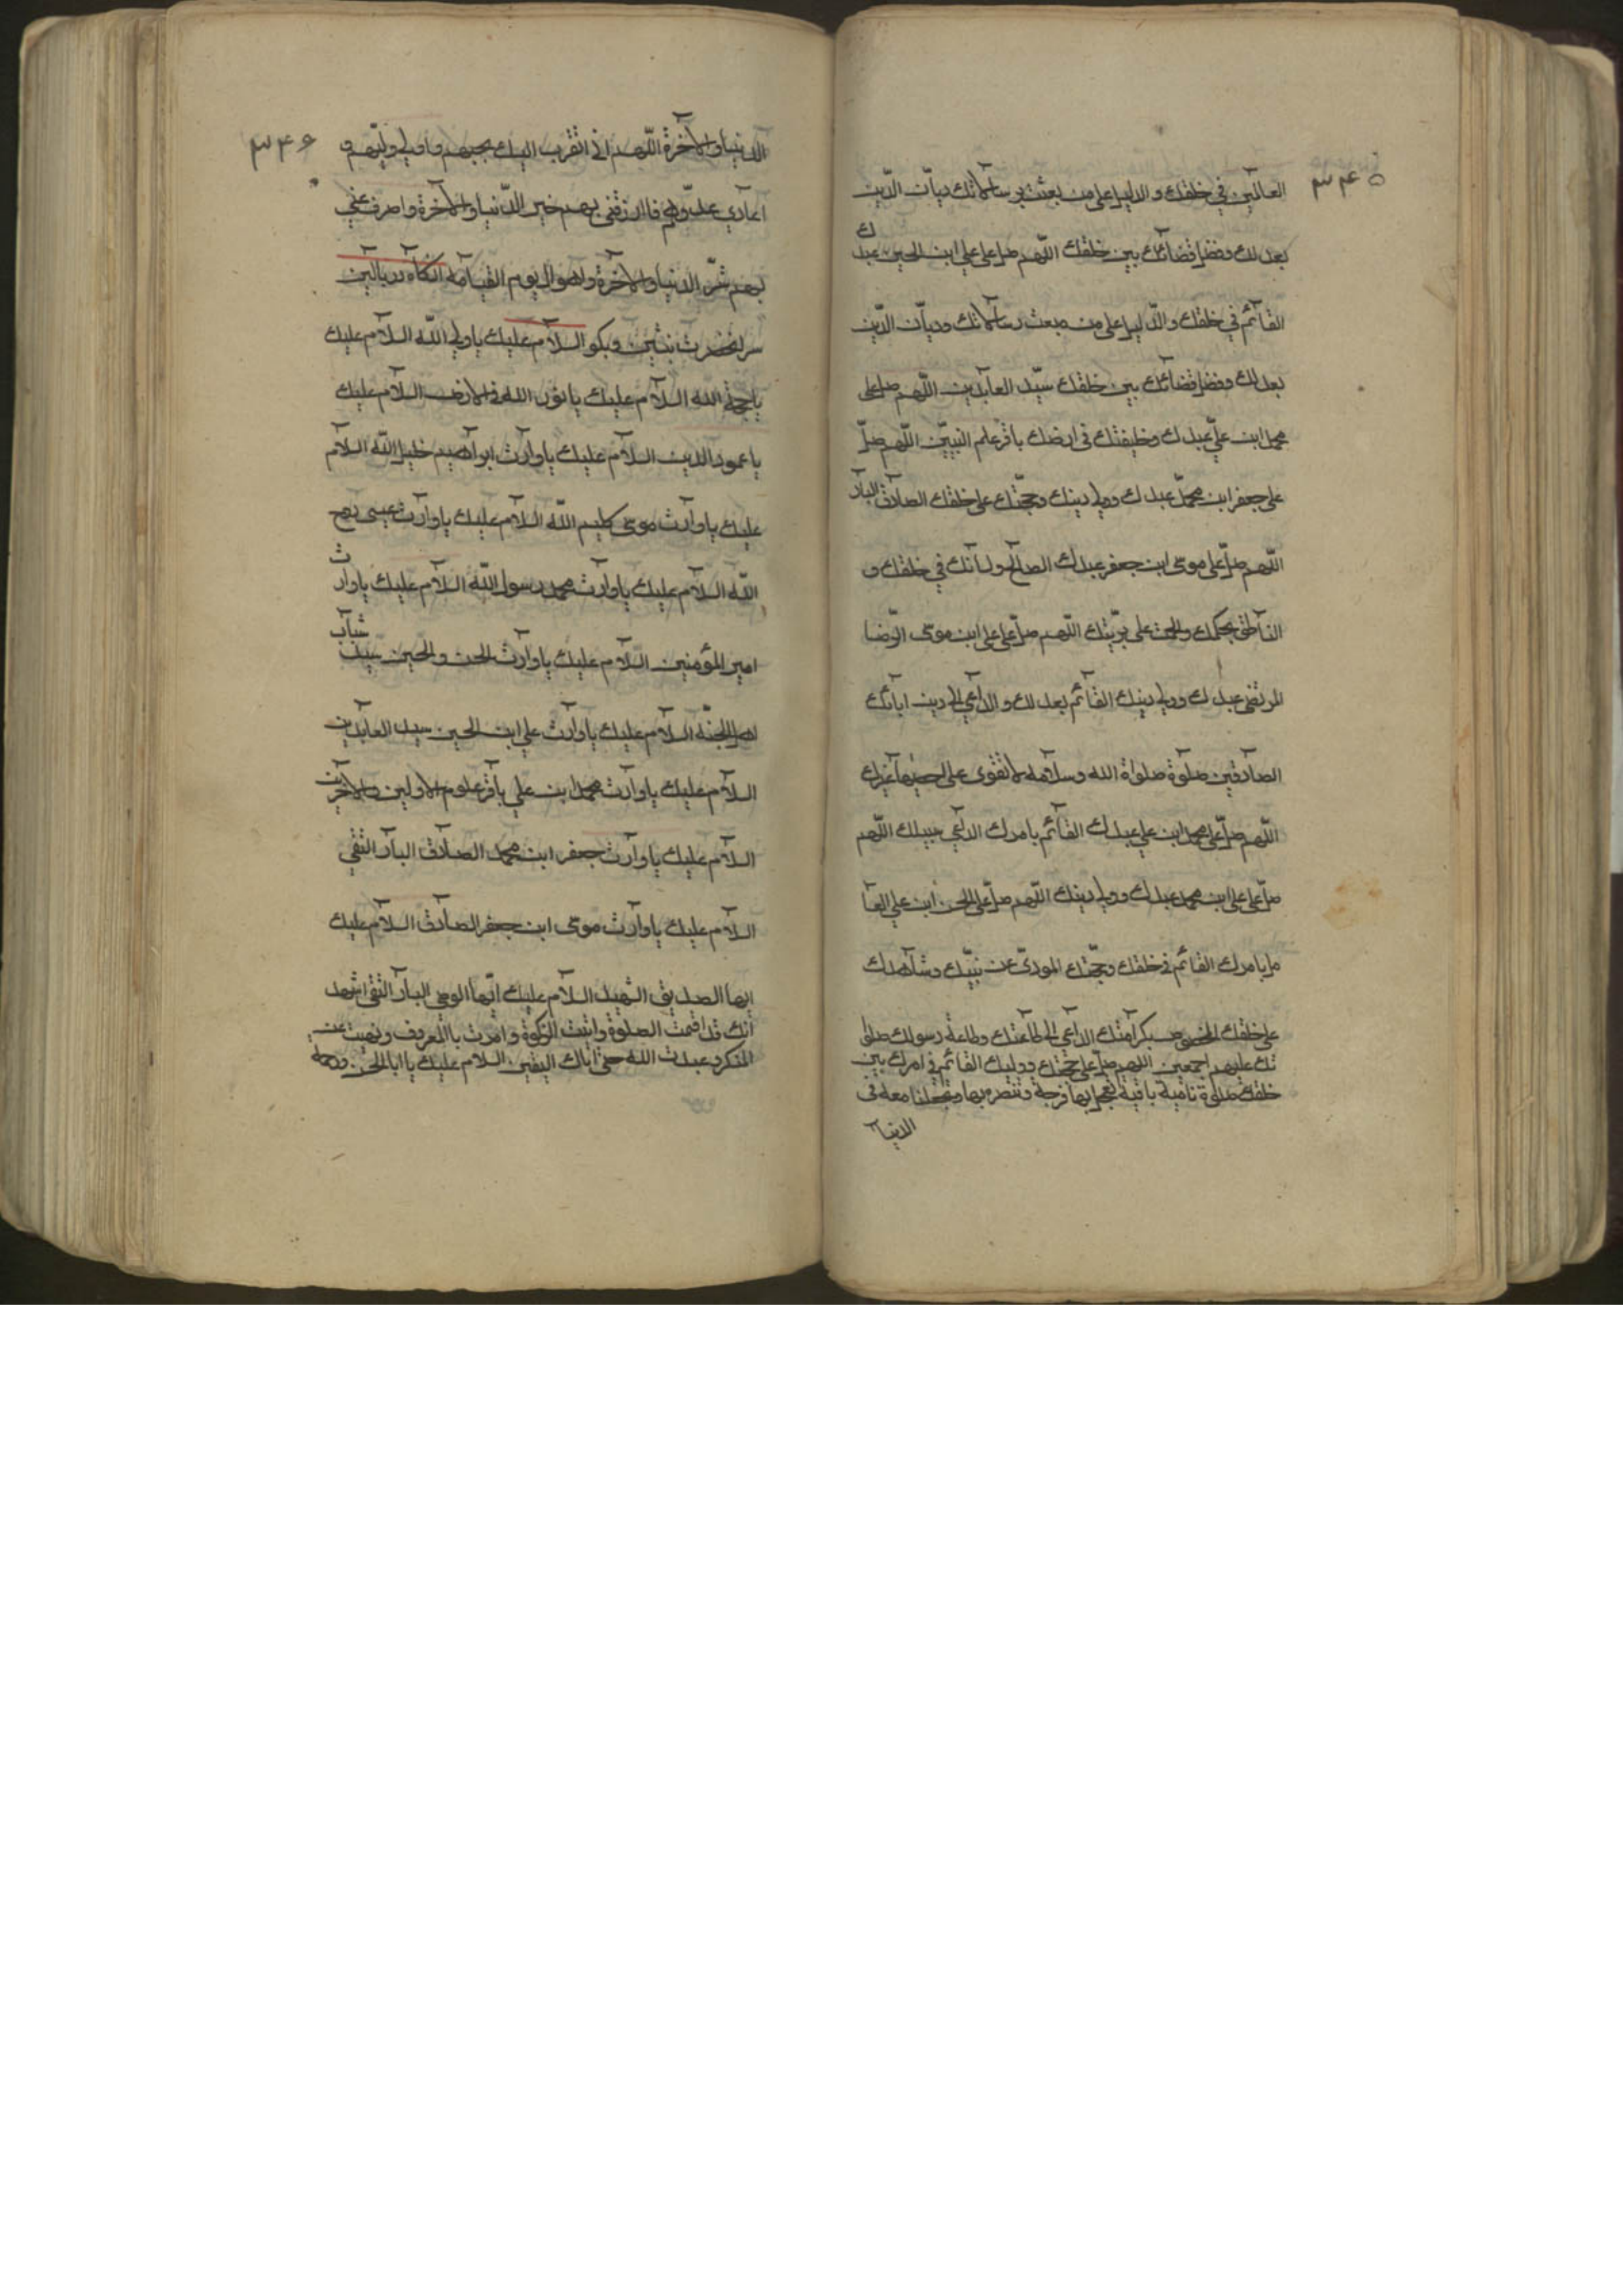 ۳۴۵
العالمين في خلقك والدليل على من بعثت برسالاتك ديان الدّين
بعدلك وفضل قضائك بين خلقك اللّهم صل على علي ابن الحسين عبدك
القائم في خلقك والدّليل على من بعثت رسالاتك وديّان الدّين
بعدلك وفضل قضائك بين خلقك سيّد العابدين اللّهم صل على
محمد ابن عليّ عبدك وخليفتك في ارضك باقر علم النبيّين اللّهم صلّ
على جعفر ابن محمّد عبدك وولي دينك وحجّتك على خلقك الصادق البار
اللّهم صلّ على موسى ابن جعفر عبدك الصالح ولسانك في خلقك و
الناطق بحكمك والحجة على بريّتك اللّهم صلّ على علي ابن موسى الرّضا
المرتضى عبدك وولي دينك القائم بعدلك والداعي الى دينك ودين ابائك
الصادقين صلوة صلواة الله وسلامه لا تقوى على احصيها غيرك
اللّهم صلّ على محمد ابن علي عبدك القائم بامرك الداعي سبيلك اللّهم
صلّ على علي ابن محمد عبدك وولي دينك اللّهم صلّ على الحسن ابن علي العا
مل بامرك القائم في خلقك وحجّتك المودّي عن نبيّك وشاهدك
على خلقك المخصوص بكرامتك الداعي الى طاعتك وطاعة رسولك صلوا
تك عليهم اجمعين اللهم صلّ على حجّتك ووليك القائم في امرك بين
خلقك صلوة تامّية باقية تعجل بها فرجه وتنصره بها وتجعلنا معه في
الدنيا
۳۴۶
الدنيا والآخرة اللّهم اني اتقرب اليك بحبهم واوالي وليّهم و
اعادي عدوّهم فاارزقني بهم خير الدّنيا والآخرة واصرف عنّي
بهم شرّ الدنيا والآخرة واهوال يوم القيامة انكاه در بالين
سر انحضرت بنشين وبكو السلام عليك ياولي اللّه السلام عليك
ياحجة الله السلام عليك يانور الله في الارض السلام عليك
ياعمود الدين السلام عليك ياوارث ابراهيم خليل اللّه السلام
عليك ياوارث موسى كليم اللّه السلام عليك ياوارث عيسى روح
اللّه السلام عليك ياوارث محمد رسول اللّه السلام عليك ياوارث
امير المؤمنين السلام عليك ياوارث الحسن والحسين سيدي شباب
اهل الجنّة السلام عليك ياوارث علي ابن الحسين سيد العابدين
السلام عليك ياوارث محمد ابن علي باقر علوم الاولين والاخرين
السلام عليك ياوارث جعفر ابن محمد الصادق البار التقي
السلام عليك ياوارث موسى ابن جعفر الصادق السلام عليك
ايها الصديق الشهيد السلام عليك ايّها الوصي البار التقي اشهد
انك قد اقمت الصلوة واتيت الزكوة وامرت باالمعروف ونهيت عن
المنكر وعبدت الله حتى اتاك اليقين السلام عليك ياابا الحسن ورحمة